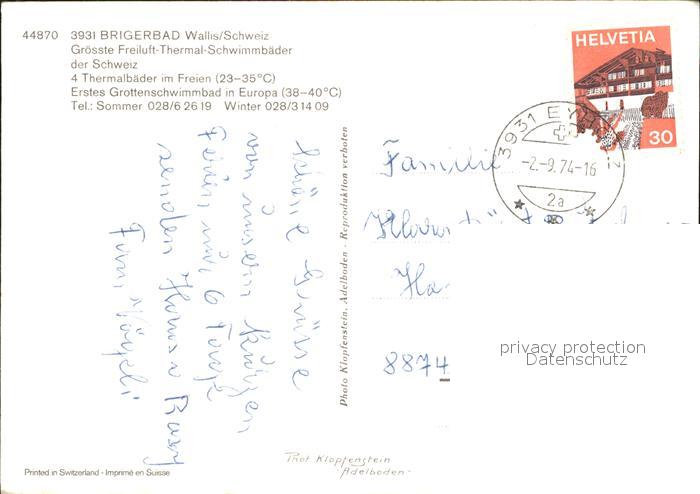 44870 3931 BRIGERBAD Wallis/Schweiz
Grösste Freiluft-Thermal-Schwimmbäder
der Schweiz
4 Thermalbäder im Freien (23–35°C)
Erstes Grottenschwimmbad in Europa (38–40°C)
Tel.: Sommer 028/6 26 19 Winter 028/3 14 09
HELVETIA
30
3931 EYHOLZ
-2.-9.74-16
2a
Schöne Grüsse
von unsern kurzen
Ferien, nur 6 Tage
senden
Fam. Vögeli
Photo Klopfenstein, Adelboden - Reproduktion verboten
Familie
8874
privacy protection
Datenschutz
Phot Klopfenstein
Adelboden
Printed in Switzerland - Imprimé en Suisse